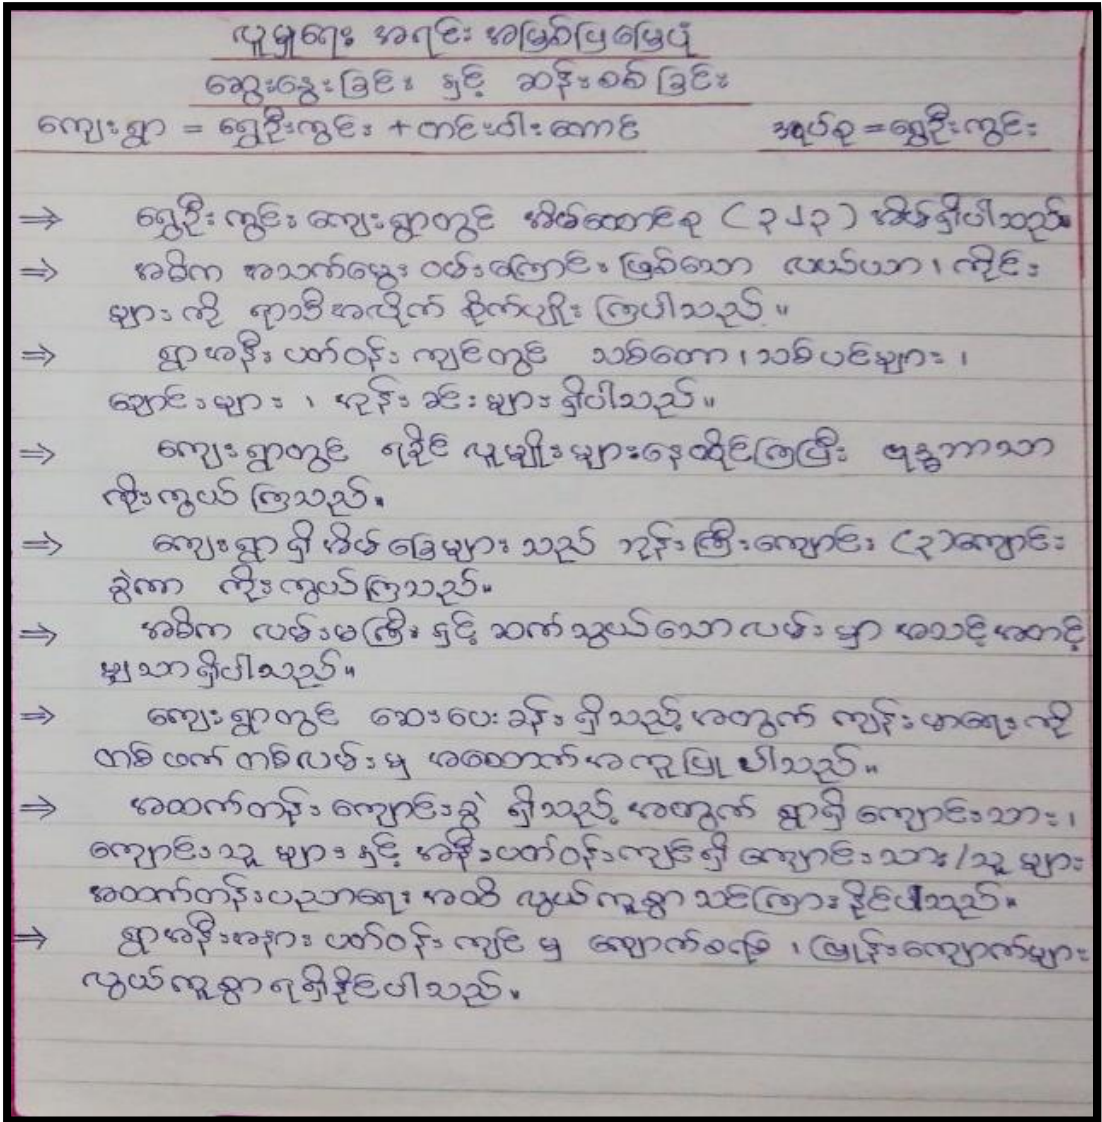 လူမှုရေး အရင်း အမြစ်ပြမြေပုံ
ဆွေးနွေးခြင်း နှင့် ဆန်းစစ်ခြင်း
ကျေးရွာ = ရွှေဦးကွင်း + တင်းဝါးတောင် အုပ်စု = ရွှေဦးကွင်း
⇒ ရွှေဦးကွင်း ကျေးရွာတွင် အိမ်ထောင်စု (၃၂၃) အိမ်ရှိပါသည်။
⇒ အဓိက အသက်မွေး ဝမ်းကြောင်း ဖြစ်သော လယ်ယာ၊ ကိုင်း
များ ကို ရာသီအလိုက် စိုက်ပျိုး ကြပါသည်။
⇒ ရွာအနီး ပတ်ဝန်း ကျင်တွင် သစ်တော၊ သစ်ပင်များ၊
ချောင်းများ ၊ ကုန်းခင်းများ ရှိပါသည်။
⇒ ကျေးရွာတွင် ရခိုင် လူမျိုးများနေထိုင်ကြပြီး ဗုဒ္ဓဘာသာ
ကိုးကွယ် ကြသည်။
⇒ ကျေးရွာရှိ အိမ်ခြေများ သည် ဘုန်းကြီးကျောင်း (၃)ကျောင်း
ခွဲကာ ကိုးကွယ်ကြသည်။
⇒ အဓိက လမ်းမကြီး နှင့် ဆက်သွယ်သောလမ်း မှာ အသင့်အတင့်
မျှသာရှိပါသည်။
⇒ ကျေးရွာတွင် ဆေးပေးခန်း ရှိသည့် အတွက် ကျန်းမာရေး ကို
တစ်ဖက် တစ်လမ်းမှ အထောက်အကူပြု ပါသည်။
⇒ အထက်တန်း ကျောင်းခွဲ ရှိသည့် အတွက် ရွာရှိ ကျောင်းသား၊
ကျောင်းသူ များ နှင့် အနီးပတ်ဝန်းကျင်ရှိ ကျောင်းသား/သူ များ
အထက်တန်းပညာရေး အထိ လွယ်ကူစွာ သင်ကြား နိုင်ပါသည်။
⇒ ရွာအနီးအနား ပတ်ဝန်း ကျင် မှ ကျောက်စရစ် ၊ မြုန်းကျောက်များ
လွယ်ကူစွာရရှိနိုင်ပါသည်။